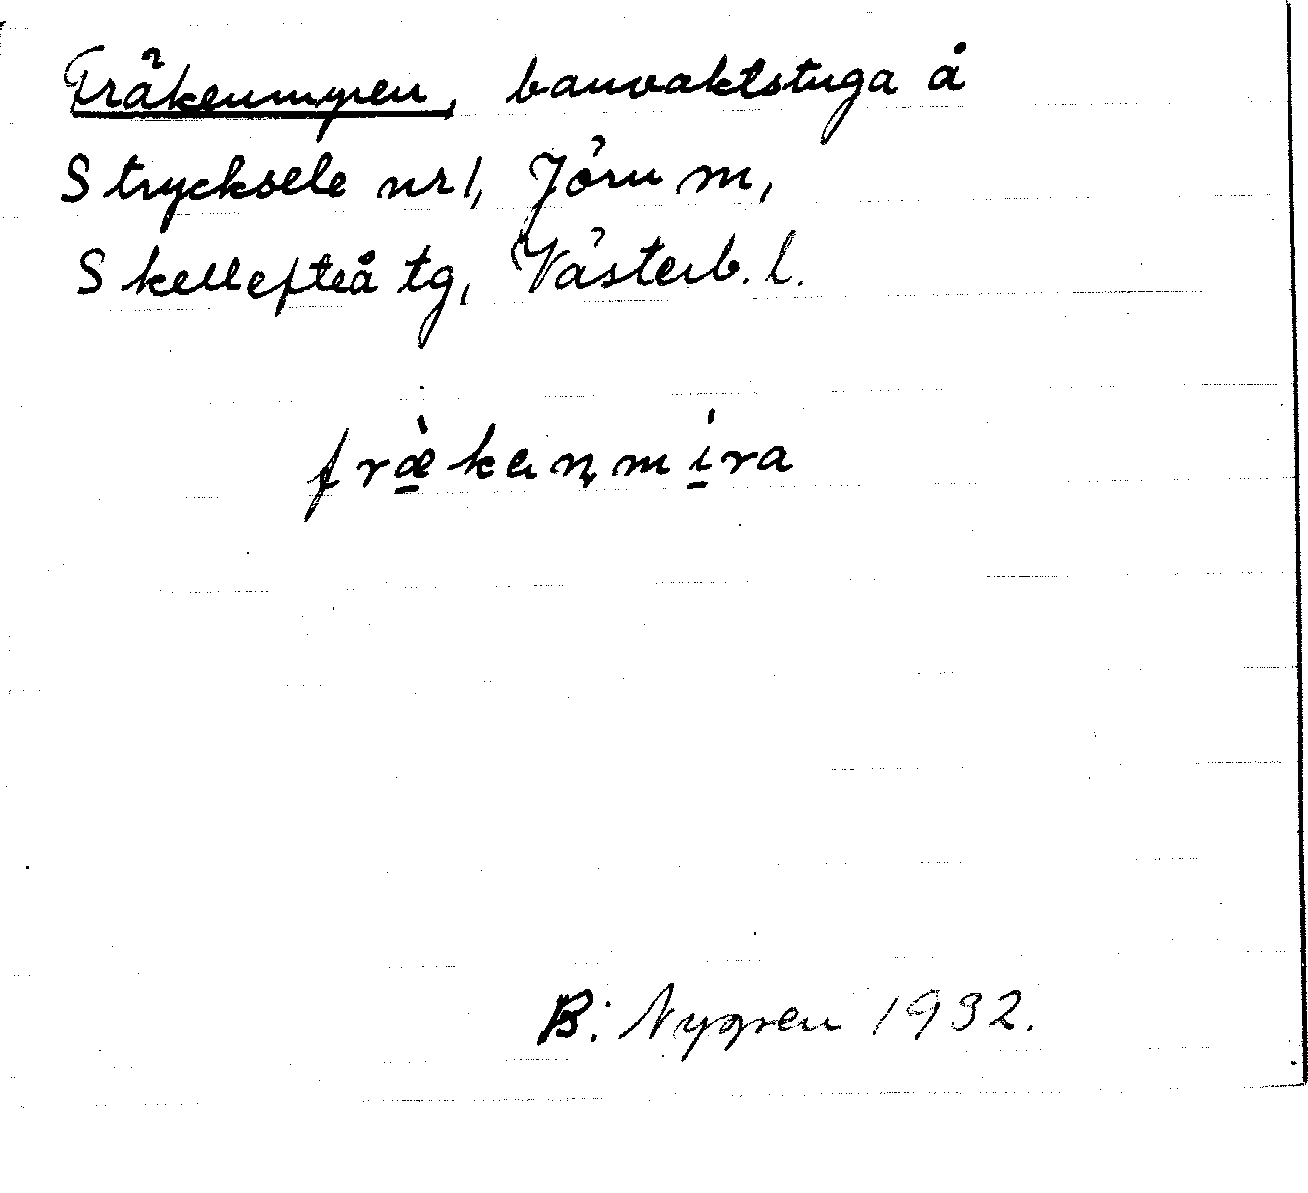 Fräkenmyren, banvaktstuga å
Strycksele nr 1, Jörn sn,
Skellefteå tg, Västerb. l.
fræ̱̀kenmi̱̇ra
B: Nygren 1932.